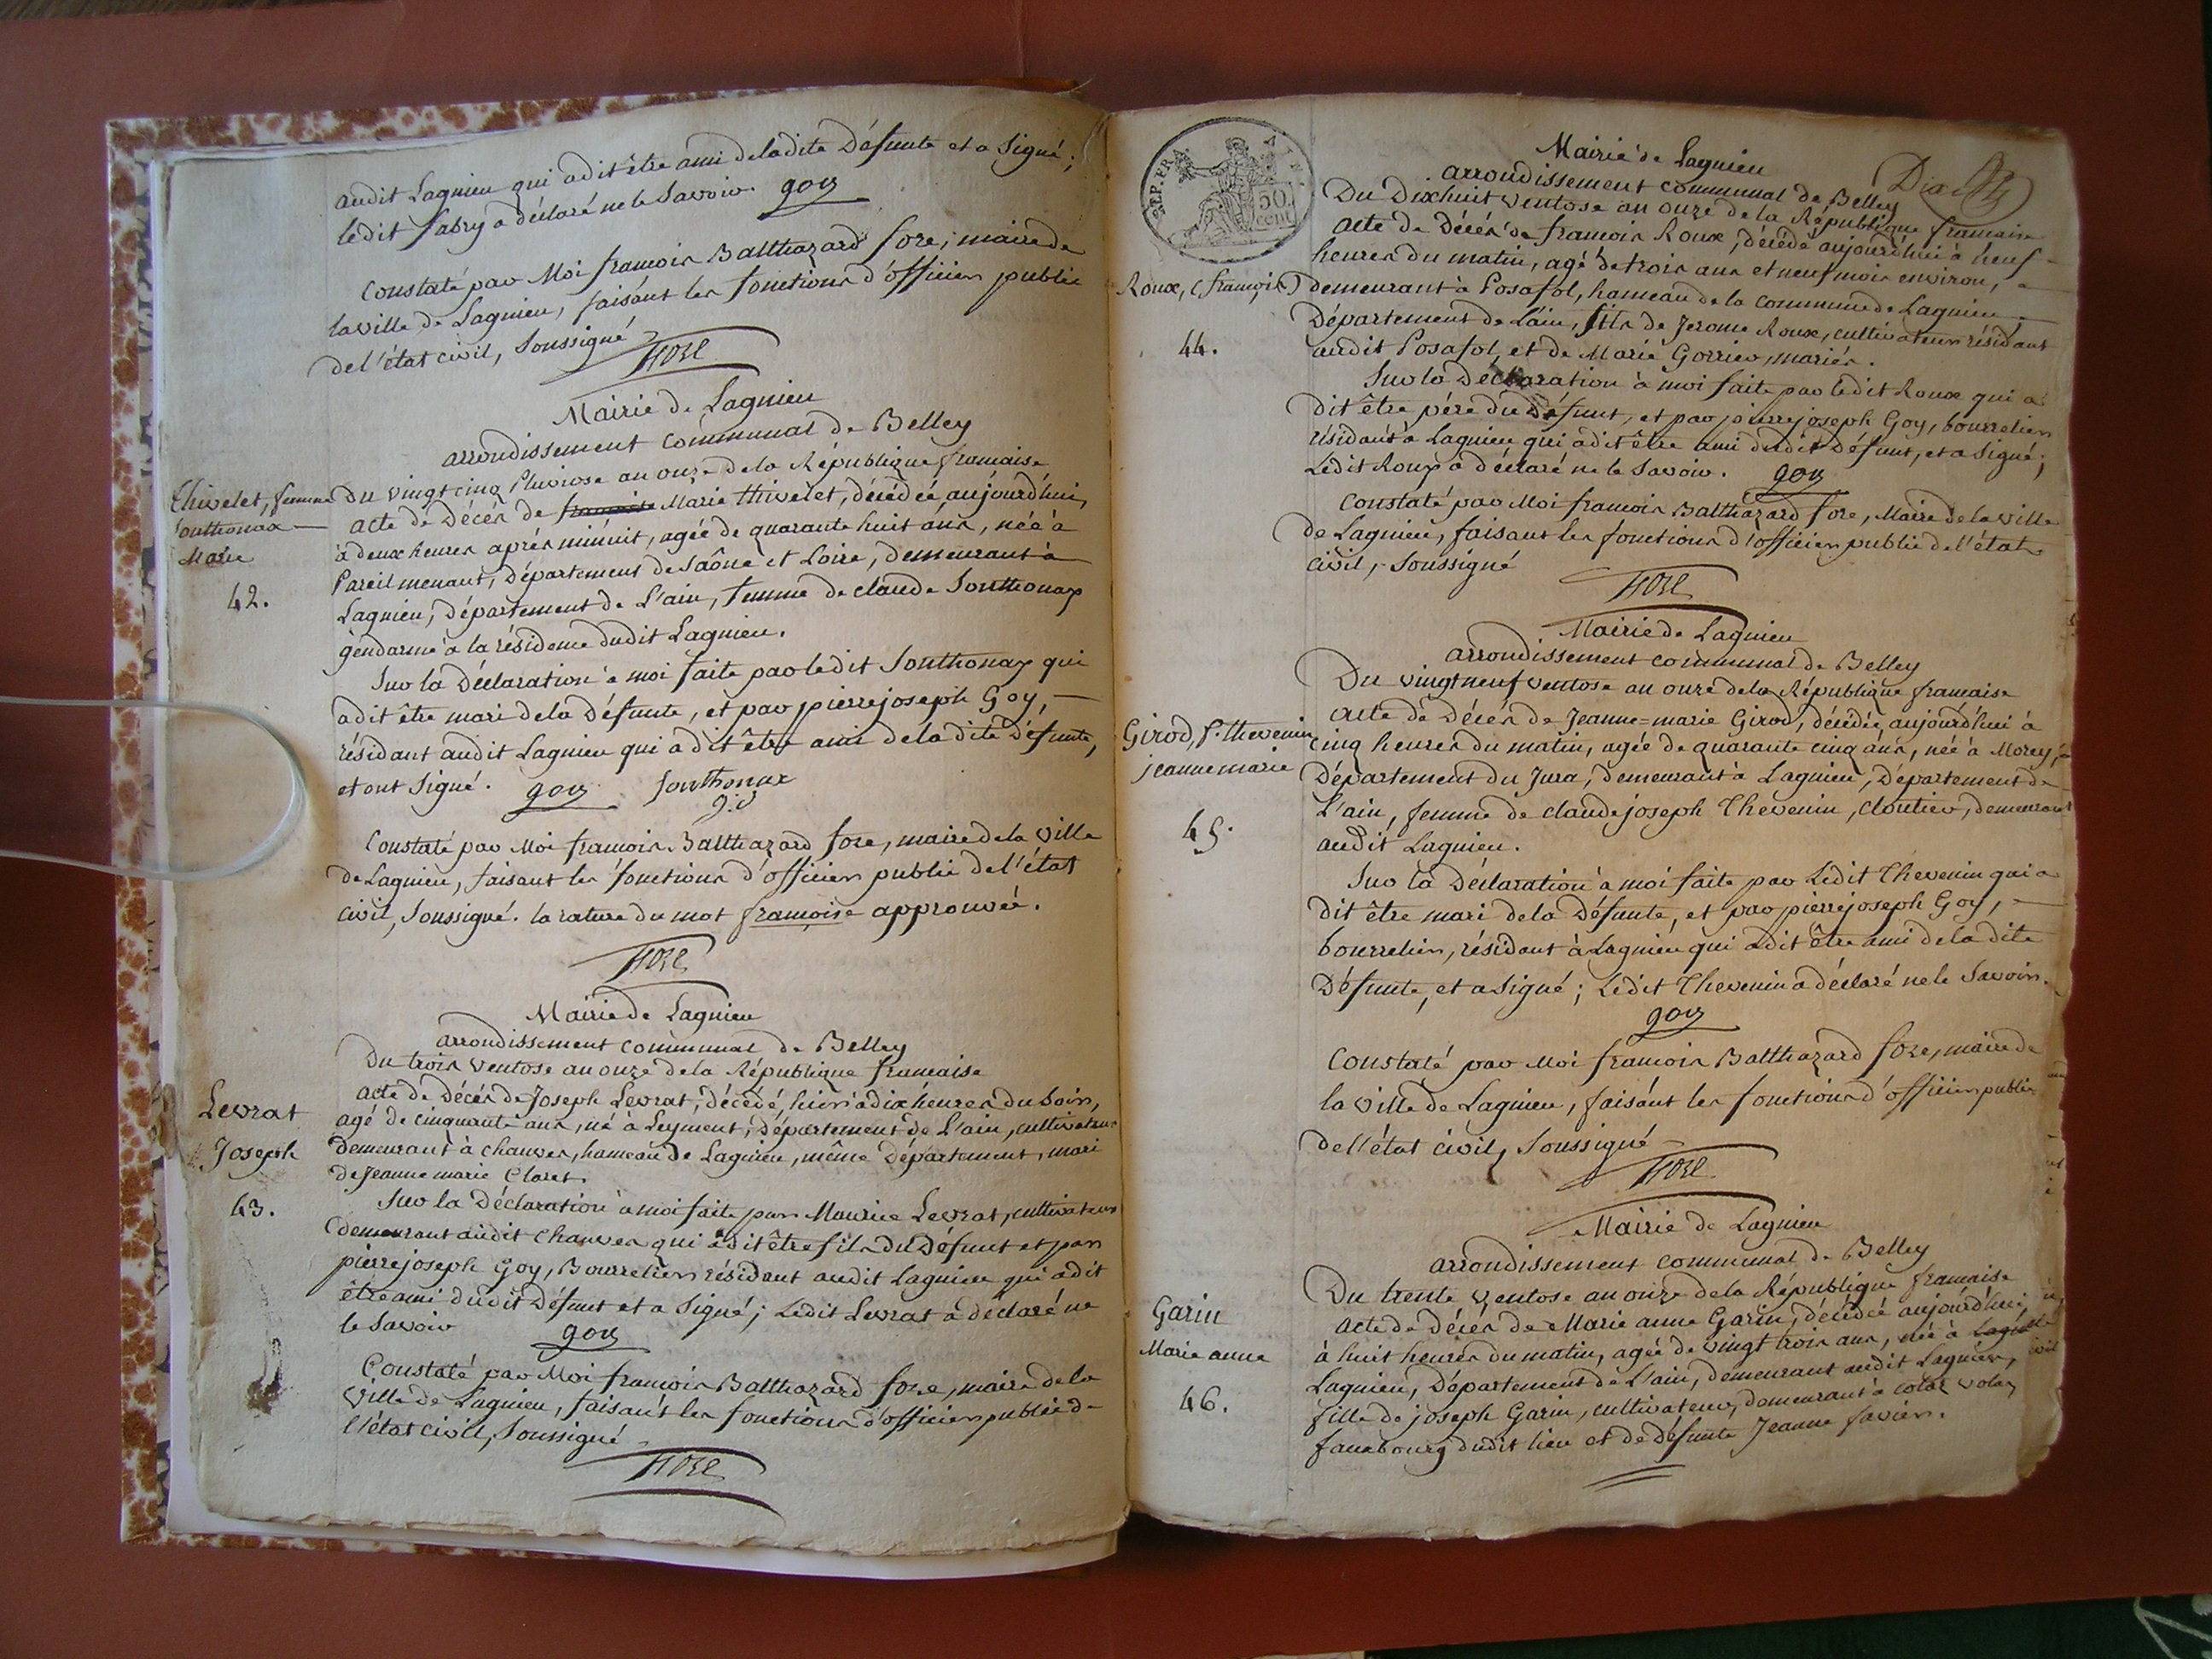 audit Lagnieu qui a dit être ami de la dite Défunte et a Signé;
ledit fabry a déclaré ne le Savoir. goy
Constaté par Moi francois Balthazard fore, maire de
la ville de Lagnieu, faisant les fonctions d'officier public
de l'état civil, Soussigné
fore
Mairie de Lagnieu
arrondissement communal de Belley
Du vingt cinq Pluviose an onze de la République francaise
Thivelet, femme
Southonax
Marie
42.
acte de Décès de francoise Marie thivelet, décédée aujourd'hui,
à deux heures après minuit, agée de quarante huit ans, née à
Pareil menaut, Département de Saône et Loire, Demeurant à
Lagnieu, Département de L'ain, femme de claude Southonax
gendarme à la résidence dudit Lagnieu.
Sur la Déclaration à moi faite par ledit Southonax qui
a dit être mari de la Défunte, et par pierre joseph Goy,
résidant audit Lagnieu qui a dit être ami de la dite Défunte,
et ont Signé. goy Southonax
Constaté par Moi francois Balthazard fore, maire de la ville
de Lagnieu, faisant les fonctions d'officier public de l'état
civil, Soussigné. la rature du mot françoise approuvée.
fore
Mairie de Lagnieu
arrondissement communal de Belley
Du trois ventose an onze de la République francaise
Levrat
Joseph
43.
acte de Décès de Joseph Levrat, décédé, hier à dix heures du Soir,
agé de cinquante ans, né a Leyment, Département de L'ain, cultivateur
demeurant à chauves, hameau de Lagnieu, même Département, mari
de Jeanne marie Claret.
Sur la Déclaration à moi faite par Maurice Levrat, cultivateur
demeurant audit chauves qui a dit être fils du Défunt et par
pierre joseph Goy, Bourrelier résidant audit Lagnieu qui a dit
être ami dudit Défunt et a Signé; Ledit Levrat a déclaré ne
le Savoir goy
Constaté par Moi francois Balthazard fore, maire de la
ville de Lagnieu, faisant les fonctions d'officier public de
l'état civil, Soussigné
fore
REP. FRA.
50
cent
Mairie de Lagnieu
arrondissement communal de Belley
Du Dix huit ventose an onze de la République francaise
Roux, (françois)
44.
acte de Décès de francois Roux, décédé aujourd'hui à neuf
heures du matin, agé de trois ans et neuf mois environ,
demeurant à Posafol, hameau de la commune de Lagnieu,
Département de L'ain, fils de Jerome Roux, cultivateur résidant
audit Posafol, et de Marie Gorrier, mariés.
Sur la Déclaration à moi faite par ledit Roux qui a
dit être père du Défunt, et par pierre joseph Goy, bourrelier
résidant à Lagnieu qui a dit être ami dudit Défunt, et a Signé;
Ledit Roux a déclaré ne le Savoir. goy
Constaté par Moi francois Balthazard fore, Maire de la ville
de Lagnieu, faisant les fonctions d'officier public de l'état
civil, Soussigné
fore
Mairie de Lagnieu
arrondissement communal de Belley
Du vingt neuf ventose an onze de la République francaise
Girod, f. thevenin
jeanne marie
45.
acte de Décès de Jeanne=marie Girod, décédée aujourd'hui à
cinq heures du matin, agée de quarante cinq ans, née à Morey,
Département du Jura, demeurant à Lagnieu, Département de
L'ain, femme de claude joseph Thevenin, cloutier, demeurant
audit Lagnieu.
Sur la Déclaration à moi faite par Ledit Thevenin qui a
dit être mari de la Défunte, et par pierre joseph Goy,
bourrelier, résidant à Lagnieu qui a dit être ami de la dite
Défunte, et a signé; Ledit Thevenin a déclaré ne le Savoir.
goy
Constaté par Moi francois Balthazard fore, maire de
la ville de Lagnieu, faisant les fonctions d'officier public
de l'état civil, Soussigné
fore
Mairie de Lagnieu
arrondissement communal de Belley
Du trente ventose an onze de la République francaise
Garin
Marie anne
46.
acte de Décès de Marie anne Garin, décédée aujourd'hui,
à huit heures du matin, agée de vingt trois ans, née à
Lagnieu, Département de L'ain, demeurant audit Lagnieu,
fille de joseph Garin, cultivateur, demeurant à colas volas
fauxbourg dudit lieu et de défunte Jeanne favier.